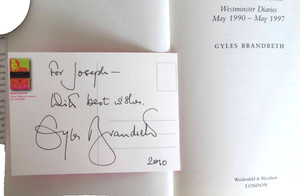 For Joseph —
With best wishes.
Gyles Brandreth
2010
Westminster Diaries
May 1990 – May 1997
GYLES BRANDRETH
Weidenfeld & Nicolson
LONDON